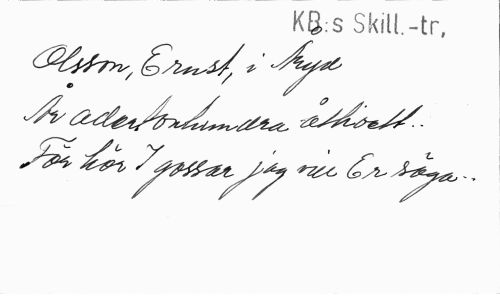 KB:s Skill.-tr,
Olsson, Ernst, i Åryd
År adertonhundra åttioett..
För hör I gossar jag vill Er säga..